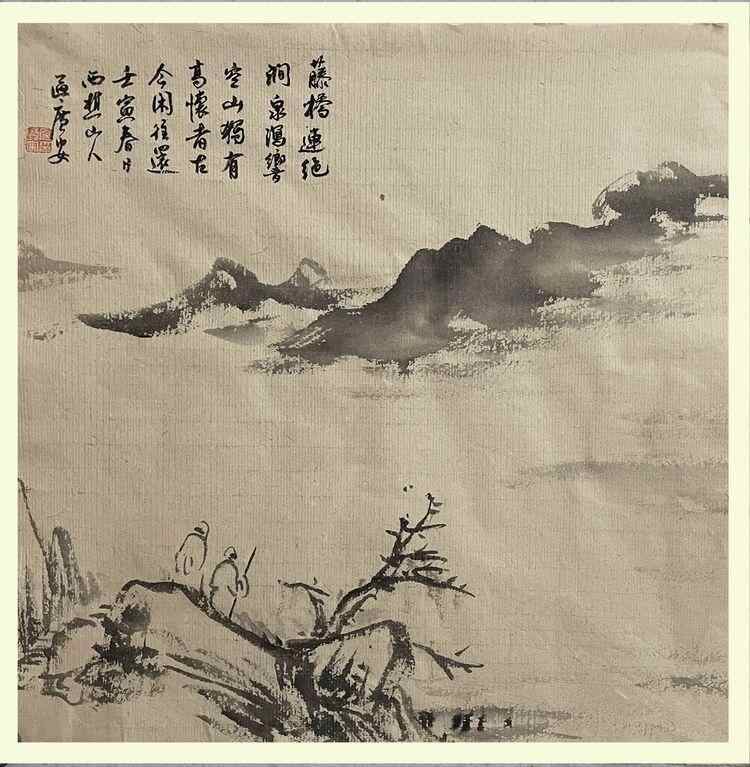 藤橋連絕
澗泉瀉響
空山獨有
高懷者古
今閑往還
壬寅春日
西樵山人
區廣安